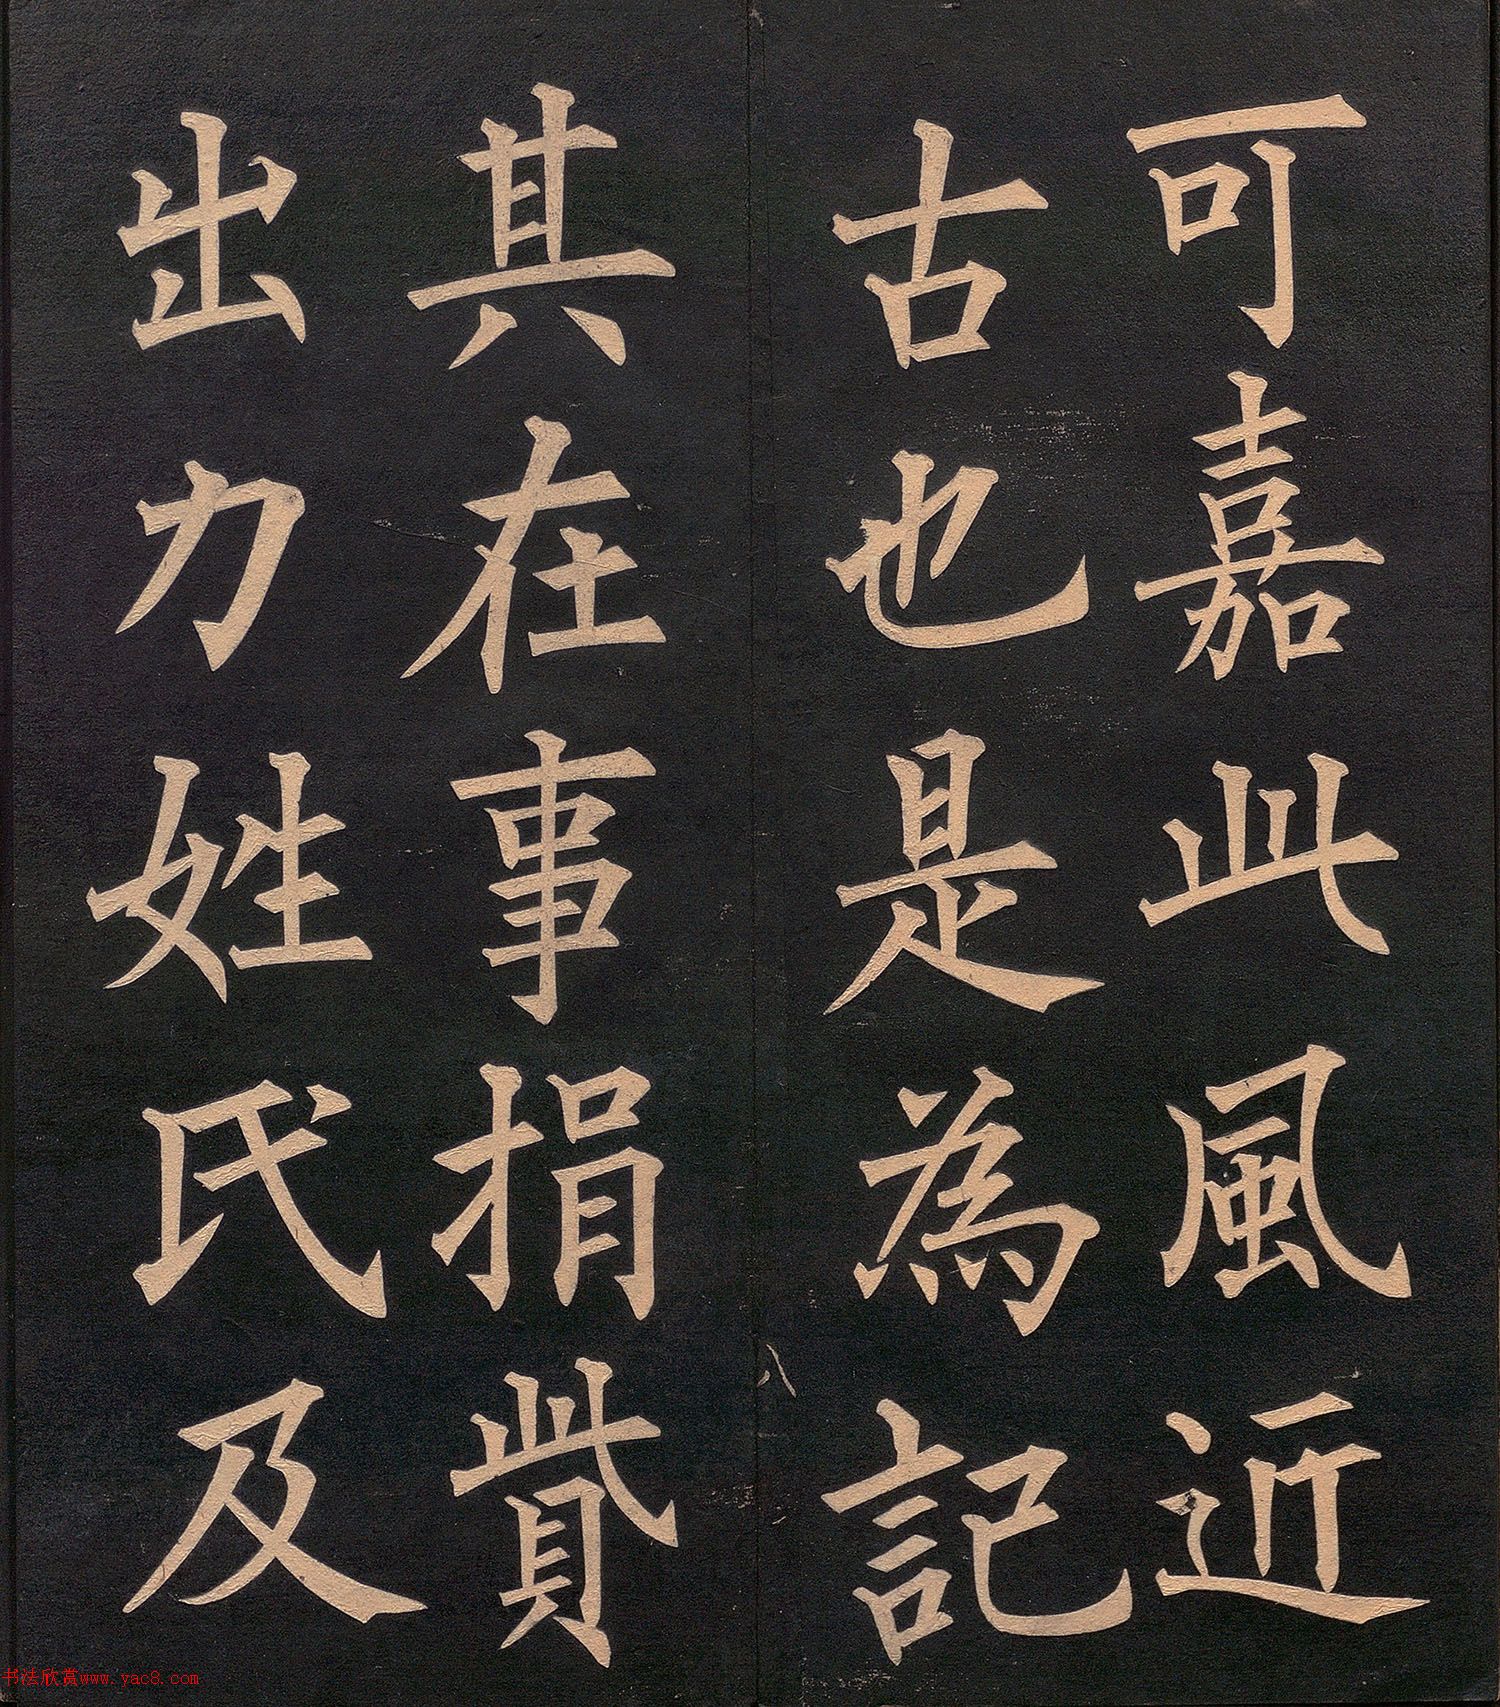 可嘉此風近
古也是為記
其在事捐貲
出力姓氏及
书法欣赏www.yac8.com